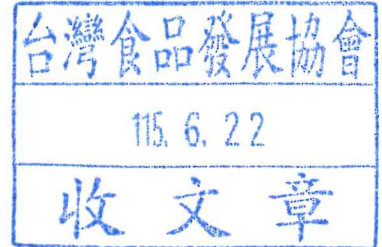 台灣食品發展協會
115. 6. 22
收文章